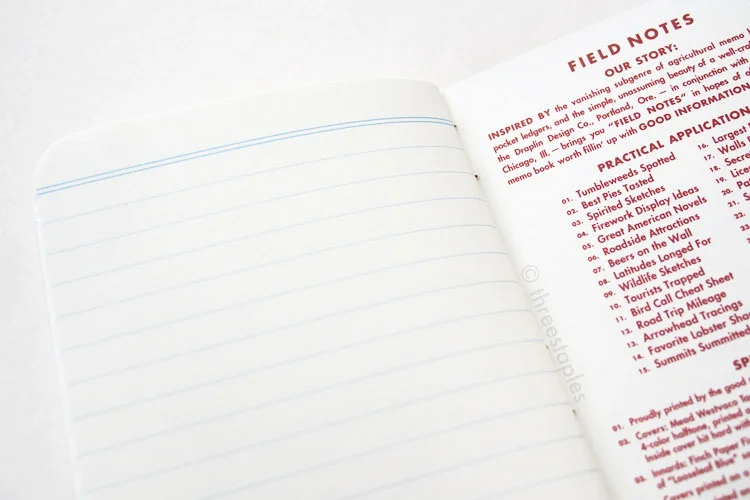 FIELD NOTES
OUR STORY:
INSPIRED BY the vanishing subgenre of agricultural memo
pocket ledgers, and the simple, unassuming beauty of a well-
the Draplin Design Co., Portland, Ore. — in conjunction with
Chicago, Ill. — brings you "FIELD NOTES" in hopes of
memo book worth fillin' up with GOOD INFORMATION
PRACTICAL APPLICATION
01. Tumbleweeds Spotted
02. Best Pies Tasted
03. Spirited Sketches
04. Firework Display Ideas
05. Great American Novels
06. Roadside Attractions
07. Beers on the Wall
08. Latitudes Longed For
09. Wildlife Sketches
10. Tourists Trapped
11. Bird Call Cheat Sheet
12. Road Trip Mileage
13. Arrowhead Tracings
14. Favorite Lobster
15. Summits Summitted
16. Largest
17. Walls
18.
19.
20.
21.
22.
© threestaples
01. Proudly printed by the good
02. Covers: Mead Westvaco
4-color halftone, printed
Inside cover hit hard with
03. Innards: Finch Paper
of "Looseleaf Blue"